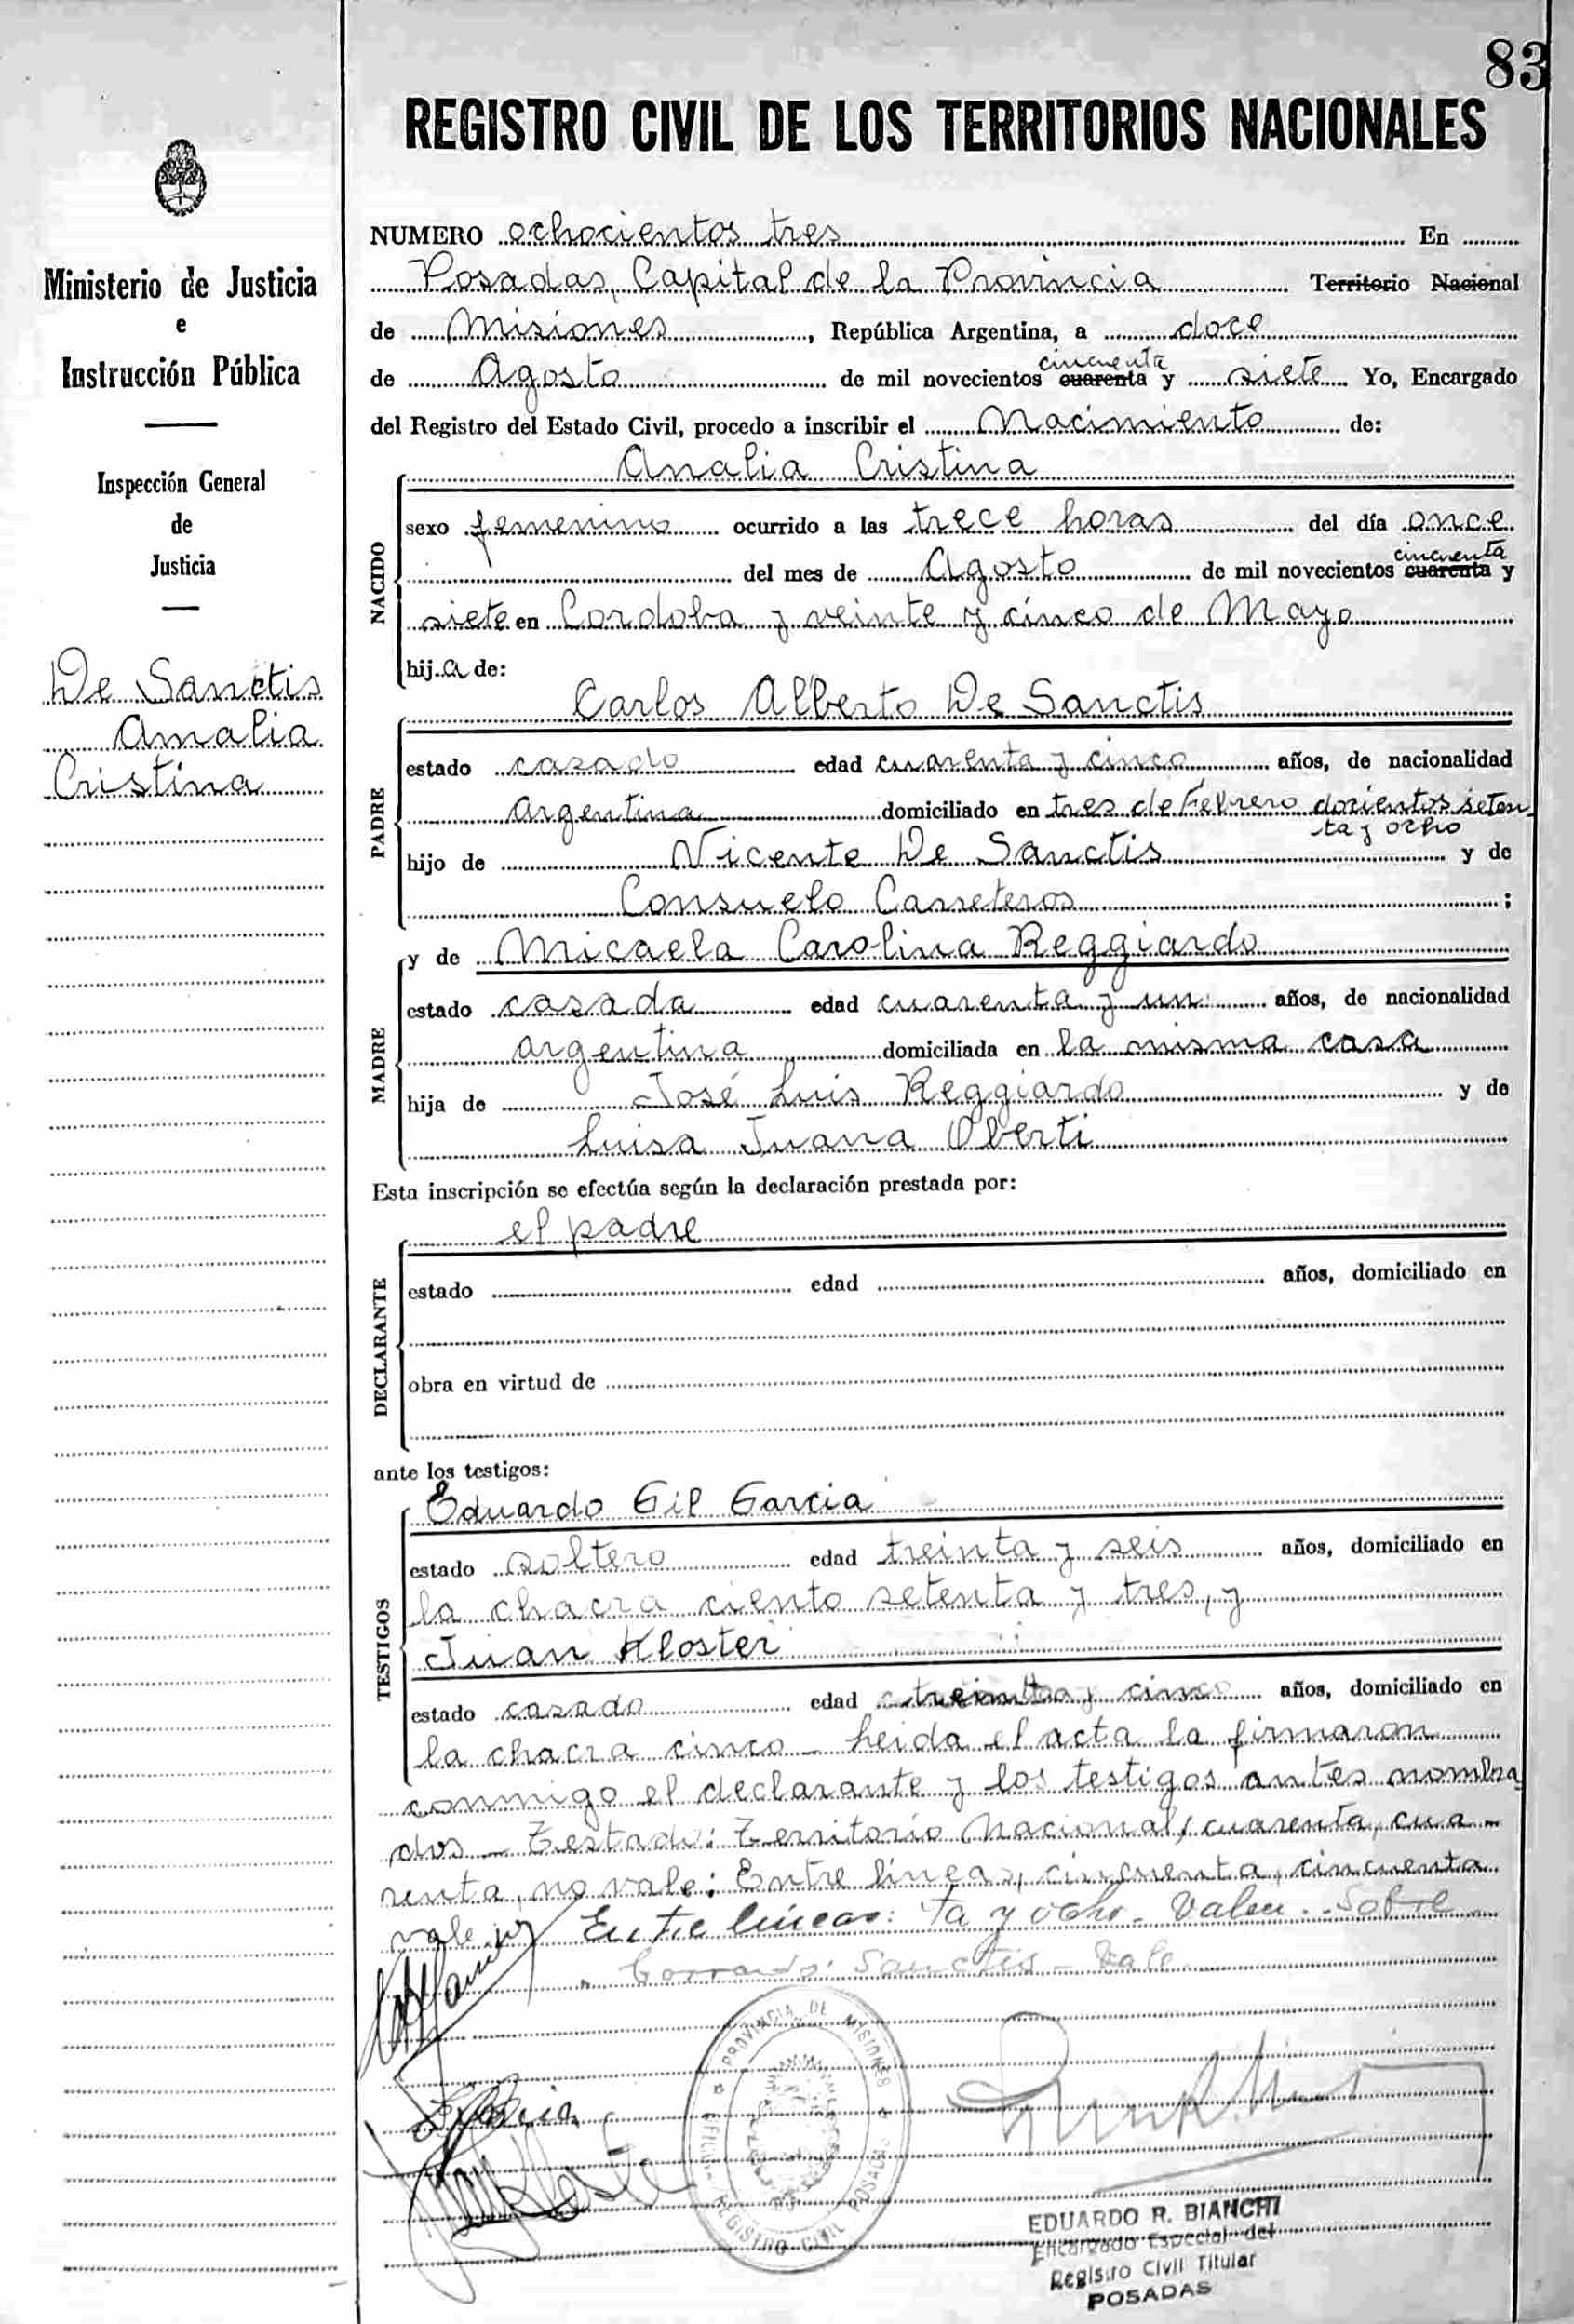 83
REGISTRO CIVIL DE LOS TERRITORIOS NACIONALES
Ministerio de Justicia
e
Instrucción Pública
Inspección General
de
Justicia
De Sanctis
Analia
Cristina
NUMERO ochocientos tres En
Posadas, Capital de la Provincia Territorio Nacional
de Misiones, República Argentina, a doce
cincuenta
de Agosto de mil novecientos cuarenta y siete Yo, Encargado
del Registro del Estado Civil, procedo a inscribir el Nacimiento de:
Analia Cristina
NACIDO
sexo femenino ocurrido a las trece horas del día once
cincuenta
del mes de Agosto de mil novecientos cuarenta y
siete en Cordoba y veinte y cinco de Mayo
hija de:
Carlos Alberto De Sanctis
PADRE
estado casado edad cuarenta y cinco años, de nacionalidad
argentina domiciliado en tres de Febrero docientos seten
ta y ocho
hijo de Vicente De Sanctis y de
Consuelo Carreteros;
y de Micaela Carolina Reggiardo
MADRE
estado casada edad cuarenta y un años, de nacionalidad
argentina domiciliada en la misma casa
hija de José Luis Reggiardo y de
Luisa Juana Oberti
Esta inscripción se efectúa según la declaración prestada por:
el padre
DECLARANTE
estado edad años, domiciliado en
obra en virtud de
ante los testigos:
Eduardo Gil Garcia
TESTIGOS
estado soltero edad treinta y seis años, domiciliado en
la chacra ciento setenta y tres, y
Juan Kloster
estado casado edad treinta y cinco años, domiciliado en
la chacra cinco - Leida el acta la firmaron
conmigo el declarante y los testigos antes nombra
dos - Testado: Territorio Nacional, cuarenta, cua-
renta, no vale: Entre líneas, cincuenta, cincuenta
vale Entre líneas: ta y ocho - Valen - Sobre
borrado: Sanctis - Vale
PROVINCIA DE MISIONES
REGISTRO CIVIL POSADAS
EDUARDO R. BIANCHI
Encargado Especial del
Registro Civil Titular
POSADAS